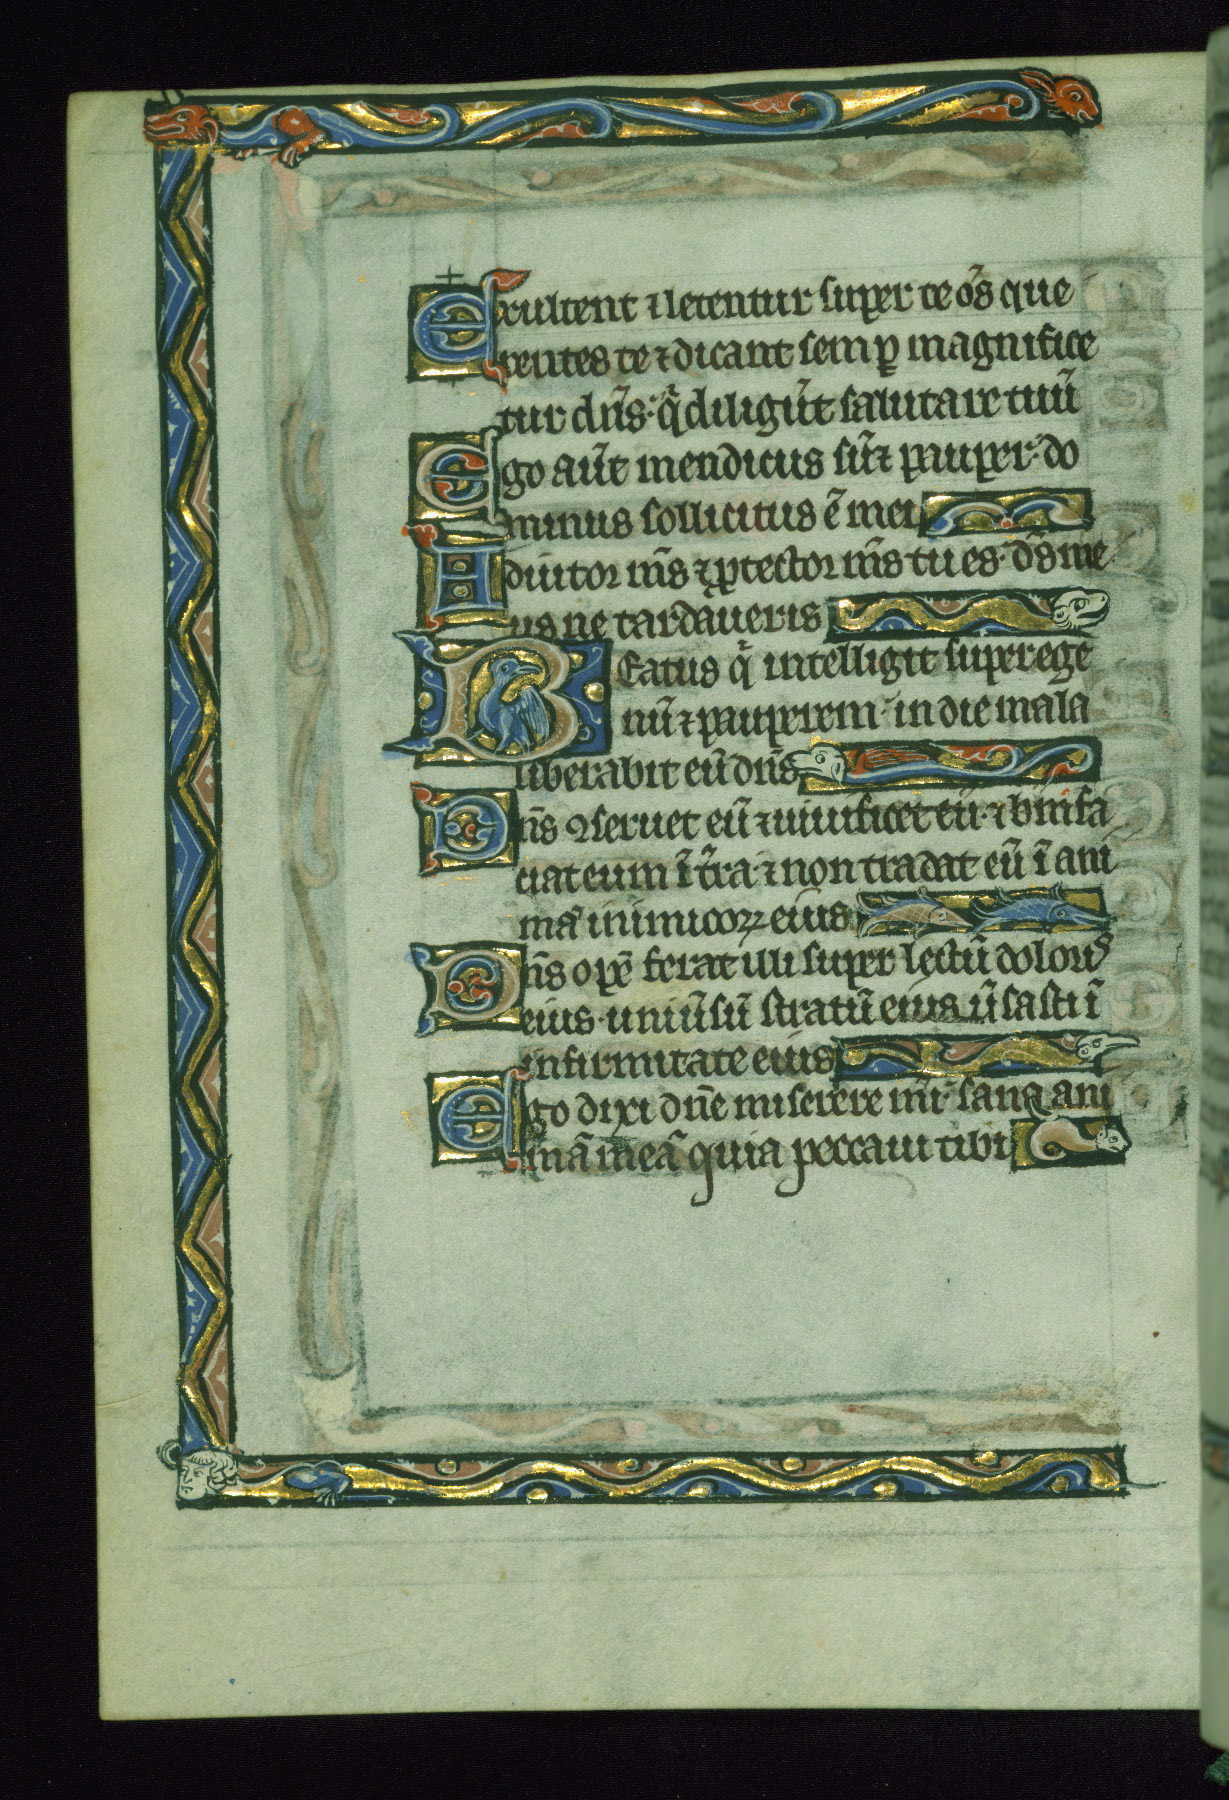 Exultent ⁊ letentur super te oꝫ̃s que
rentes te ⁊ dicant semꝑ magnifice
tur dn̄s· q̄ diligūt salutare tuū
Ego aūt mendicus sū ⁊ pauper· do
minus sollicitus ē mei
Adiutor m̄s ⁊ ꝓtector m̄s tu es· d̄s me
us ne tardaueris
Beatus q̄ intelligit super ege
nū ⁊ pauperem· in die mala
liberabit eū dn̄s
Dn̄s ꝯseruet eū ⁊ uiuificet eū· ⁊ b̄m fa
ciat eum ī t̄ra· ⁊ non tradat eū ī ani
mā inimicoꝝ eius
Dn̄s opē ferat illi super lectū dolorꝭ
eius· uniūsū stratū eius ūsasti ī
infirmitate eius
Ego dixi dn̄e miserere m̄i· sana ani
mā meā quia peccaui tibi